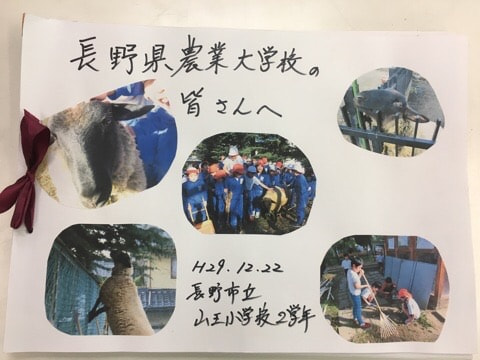 長野県農業大学校の
皆さんへ
H29.12.22
長野市立
山王小学校2学年